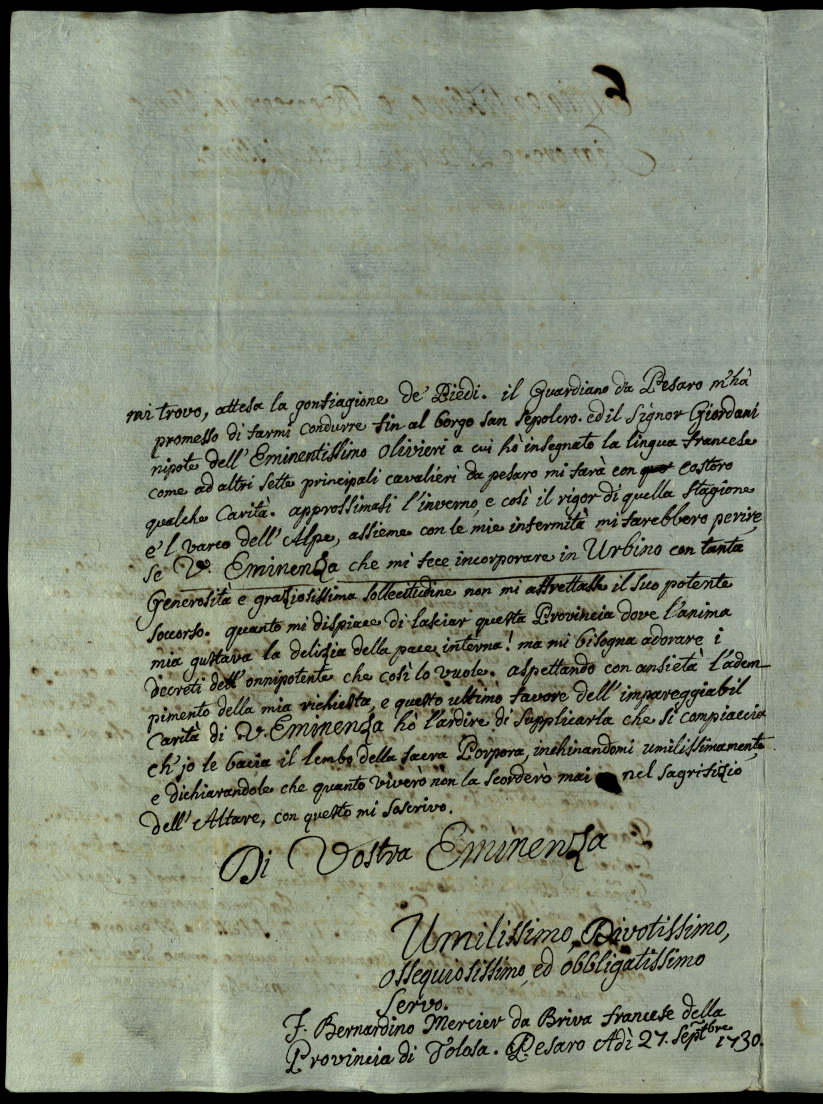 mi trovo, attesa la gonfiagione de' Piedi. il Guardiano da Pesaro m'hà
promesso di farmi condurre fin al borgo san sepolcro. ed il Signor Giordani
nipote dell'Eminentissimo Olivieri a cui hò insegnato la lingua francese
come ad altri sette principali cavalieri da pesaro mi farà con costoro
qualche Carità. approssimasi l'inverno, e così il rigor di quella stagione
e'l varco dell'Alpe, assieme con le mie infermità mi farebbero perire,
se V. Eminenza che mi fece incorporare in Urbino con tanta
Generosità e graziosissima sollecitudine non mi affrettasse il suo potente
soccorso. quanto mi dispiace di lasciar questa Provincia dove l'anima
mia gustava la delizia della pace interna! ma mi bisogna adorare i
decreti dell'onnipotente che così lo vuole. aspettando con ansietà l'adem-
pimento della mia richiesta, e questo ultimo favore dell'impareggiabil
Carità di V. Eminenza hò l'ardire di supplicarla che si compiaccia
ch'jo le bacia il lembo della sacra Porpora, inchinandomi umilissimamente
e dichiarandole che quanto viverò non la scorderò mai nel sagrifizio
dell'Altare, con questo mi soscrivo.
Di Vostra Eminenza
Umilissimo, Divotissimo,
ossequiosissimo, ed obbligatissimo
servo.
F. Bernardino Mercier da Briva francese della
Provincia di Tolosa. Pesaro Adì 27. Septbre 1730.